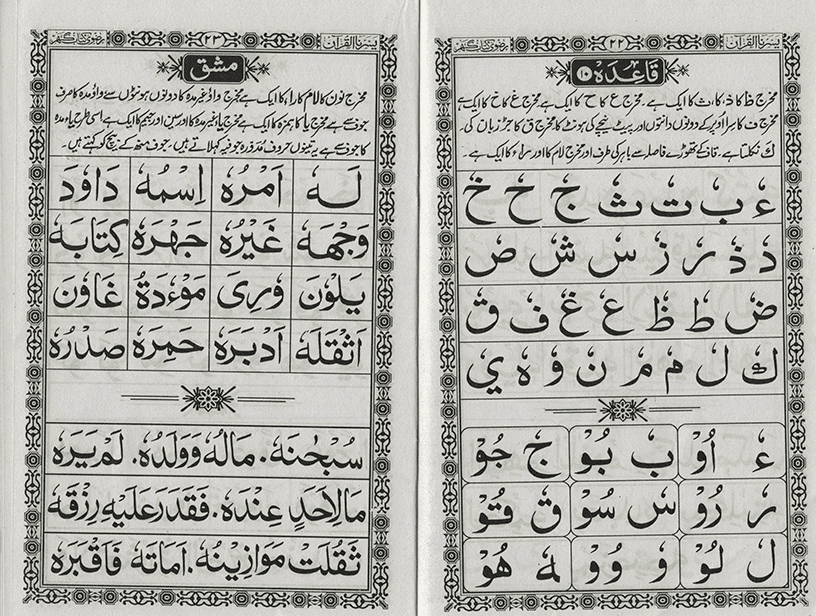 یسرنا القرآن ۲۲ رضوی کتاب گھر
قاعدہ ۱۰
مخرج ظ کا ذ کا، ث کا ایک ہے۔ مخرج ع کا ح کا ایک ہے مخرج غ کا خ کا ایک ہے
مخرج ف کا سرا اوپر کے دونوں دانتوں اور پیٹ نیچے کی ہونٹ کا مخرج ق کا جڑ زبان کی۔
ك نکلتا ہے۔ قاف کے تھوڑے فاصلہ سے باہر کی طرف اور مخرج لام کا اور سرا ء کا ایک ہے۔
ءٗ بٗ تٗ ثٗ جٗ حٗ خٗ
دٗ ذٗ رٗ زٗ سٗ شٗ صٗ
ضٗ طٗ ظٗ عٗ غٗ فٗ قٗ
كٗ لٗ مٗ مٗ نٗ وٗ هٗ يٗ
ءٗ اُوْ بٗ بُوْ جٗ جُوْ
رٗ رُوْ سٗ سُوْ قٗ قُوْ
لٗ لُوْ وٗ وُوْ هٗ هُوْ
یسرنا القرآن ۲۳ رضوی کتاب گھر
مشق
مخرج نون کا لام کا را کا ایک ہے مخرج واؤ غیر مدہ کا دونوں ہونٹوں سے واؤ مدہ کا صرف
جوف سے ہے مخرج یا کا ہمزہ کا ایک ہے مخرج یا غیر مدہ کا اور سین اور جیم کا ایک ہے اسی طرح یاء مدہ
کا جوف سے ہے یہ تینوں حروف مدہ وہ جوفیہ کہلاتے ہیں۔ جوف منھ کے بیچ کو کہتے ہیں۔
لَهٗ اَمْرُهٗ اِسْمُهٗ دَاوٗدَ
وَجْهَهٗ غَيْرُهٗ جَهْرَهٗ كِتَابَهٗ
يَلْوٗنَ وٗرِىَ مَوْءٗدَةُ غَاوٗنَ
اَثْقَلَهٗ اَدْبَرَهٗ خَمِرَهٗ صَدْرُهٗ
سُبْحٰنَهٗ. مَالُهٗ وَوَلَدُهٗ. لَمْ يَرَهٗ
مَالِاَحَدٍ عِنْدَهٗ. فَقَدَرَ عَلَيْهِ رِزْقَهٗ
ثَقُلَتْ مَوَازِيْنُهٗ. اَمَاتَهٗ فَاَقْبَرَهٗ